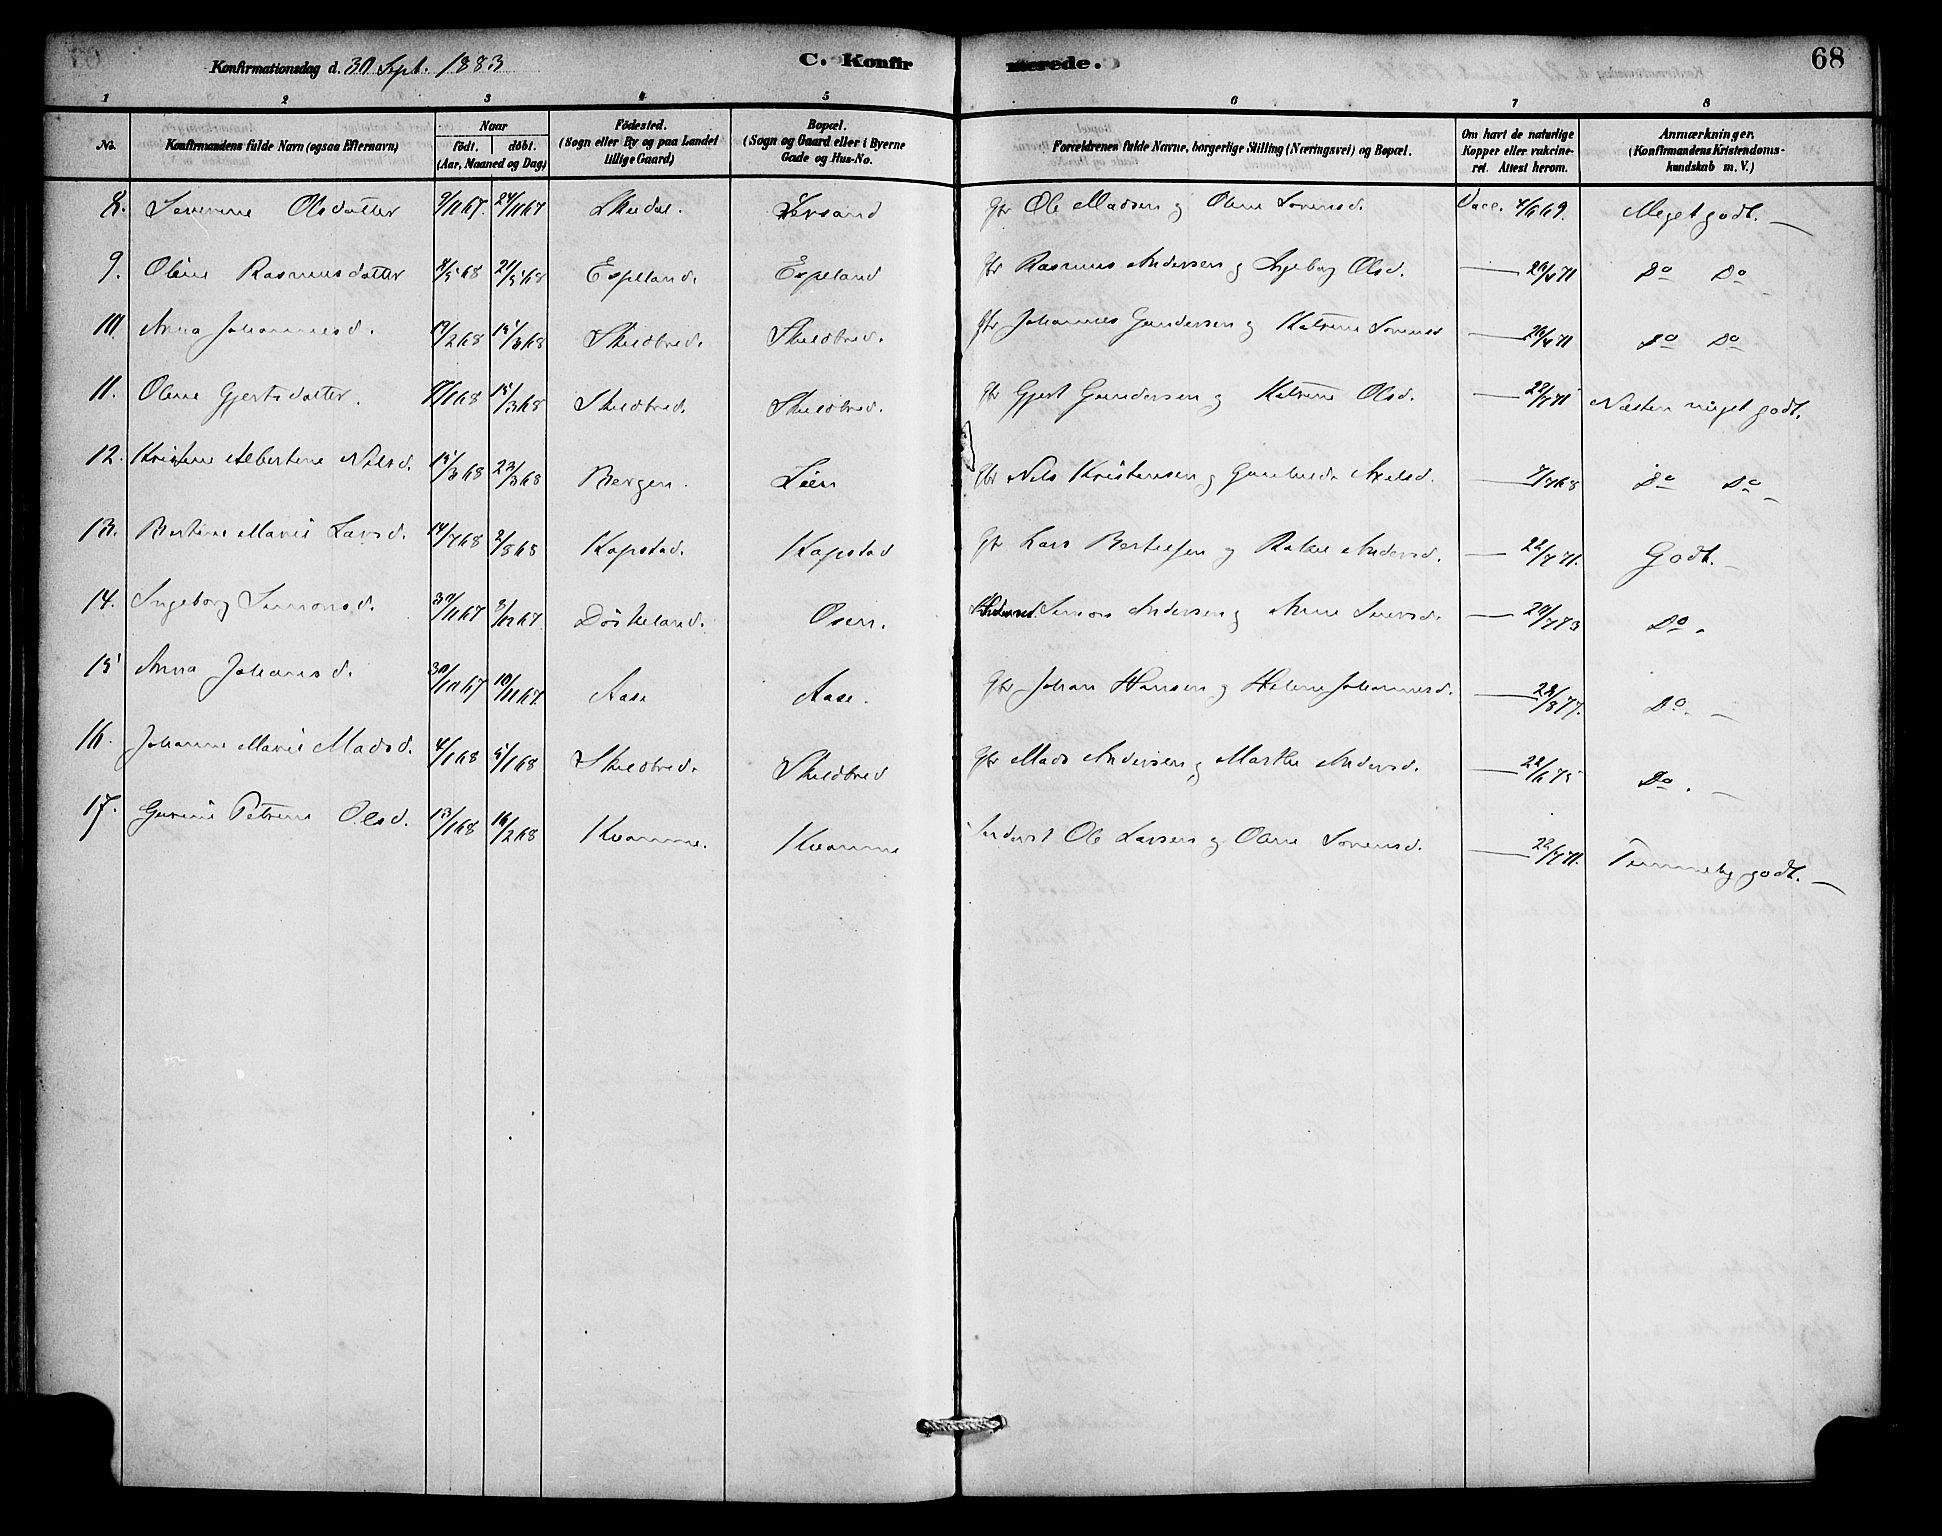 Konfirmationsdag d. 30 Sept. 1883
C. Konfirmerede.
68
1 2 3 4 5 6 7 8
No. Konfirmandens fulde Navn (ogsaa Efternavn) Naar födt. döbt. (Aar, Maaned og Dag) Födested. (Sogn eller By og paa Landet tillige Gaard) Bopæl. (Sogn og Gaard eller i Byerne Gade og Hus-No. Forældrenes fulde Navne, borgerlige Stilling (Næringsvei) og Bopæl. Om havt de naturlige Kopper eller vakcineret. Attest herom. Anmærkninger. (Konfirmandens Kristendomskundskab m. V.)
8. Severine Olsdatter 9/11 67. 24/11 67 Skudal. Gbr Ole Madsen og Oline Sørensd. Vacc. 7/6 69. Meget godt. —
9. Oline Rasmusdatter 21/5 68 Espeland. Espeland Gbr Rasmus Andersen og Ingeborg Olsd. — 20/4 71 Do Do —
10. Anna Johannesd. 19/2 68 15/3 68 Skildbred. Skildbred. Gbr Johannes Gundersen og Katrine Sørensd — 20/4 71 Do Do
11. Oline Gjertsdatter. 15/3 68 Skildbred. Skildbred. Gbr Gjert Gundersen og Katrine Olsd. — 22/7 71 Næsten meget godt.
12. Kristine Albertine Nilsd. 15/3 68 23/3 68 Bergen. Lien Gbr Nils Kristensen og Axelsd. — 7/7 68 Do Do —
13. Bertine Marie Larsd. 14/7 68 2/8 68 Kapstad. Kapstad Gbr Lars Bertelsen og Andersd. — 22/7 71. Godt. —
14. Ingeborg Simonsd. 30/11 67 8/12 67. Döskeland. Osen. Simon Andersen og Anne — 24/7 73 Do.
15 Anna Johansd. 30/10 67 10/11 67. Aase Aase. Gbr Johan Hansen og Helene Johannesd. — 28/8 77. Do. —
16. Johanne Marie Madsd. 4/1 68 5/1 68 Skildbred. Skildbred Gbr Mads Andersen og Marthe Andersd. — 22/6 75 Do. —
17. Gurine Petrine Olsd. 13/1 68 16/2 68 Kvamme. Kvamme Inderst Ole Larsen og Oline Sørensd. — 22/7 71. Temmelig godt. —